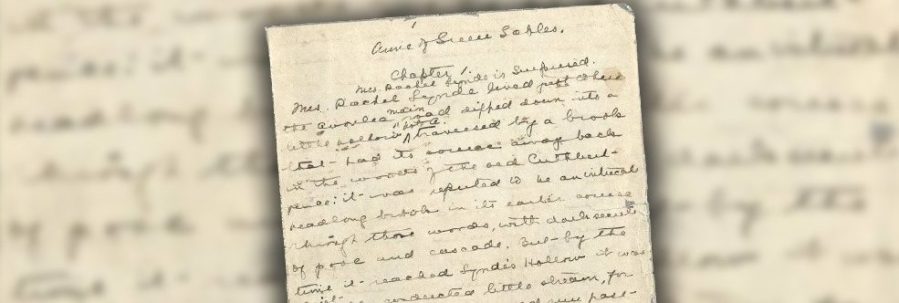 Anne of Green Gables.
Chapter 1
Mrs. Rachel Lynde is Surprised.
Mrs. Rachel Lynde lived just where
the Avonlea main road dipped down into a
little hollow traversed by a brook
that had its source away back
in the woods of the old Cuthbert
place: it was reputed to be an intricate
headlong brook in its earlier course
through those woods, with dark secrets
of pool and cascade. But by the
time it reached Lynde's Hollow it was
conducted little stream, for